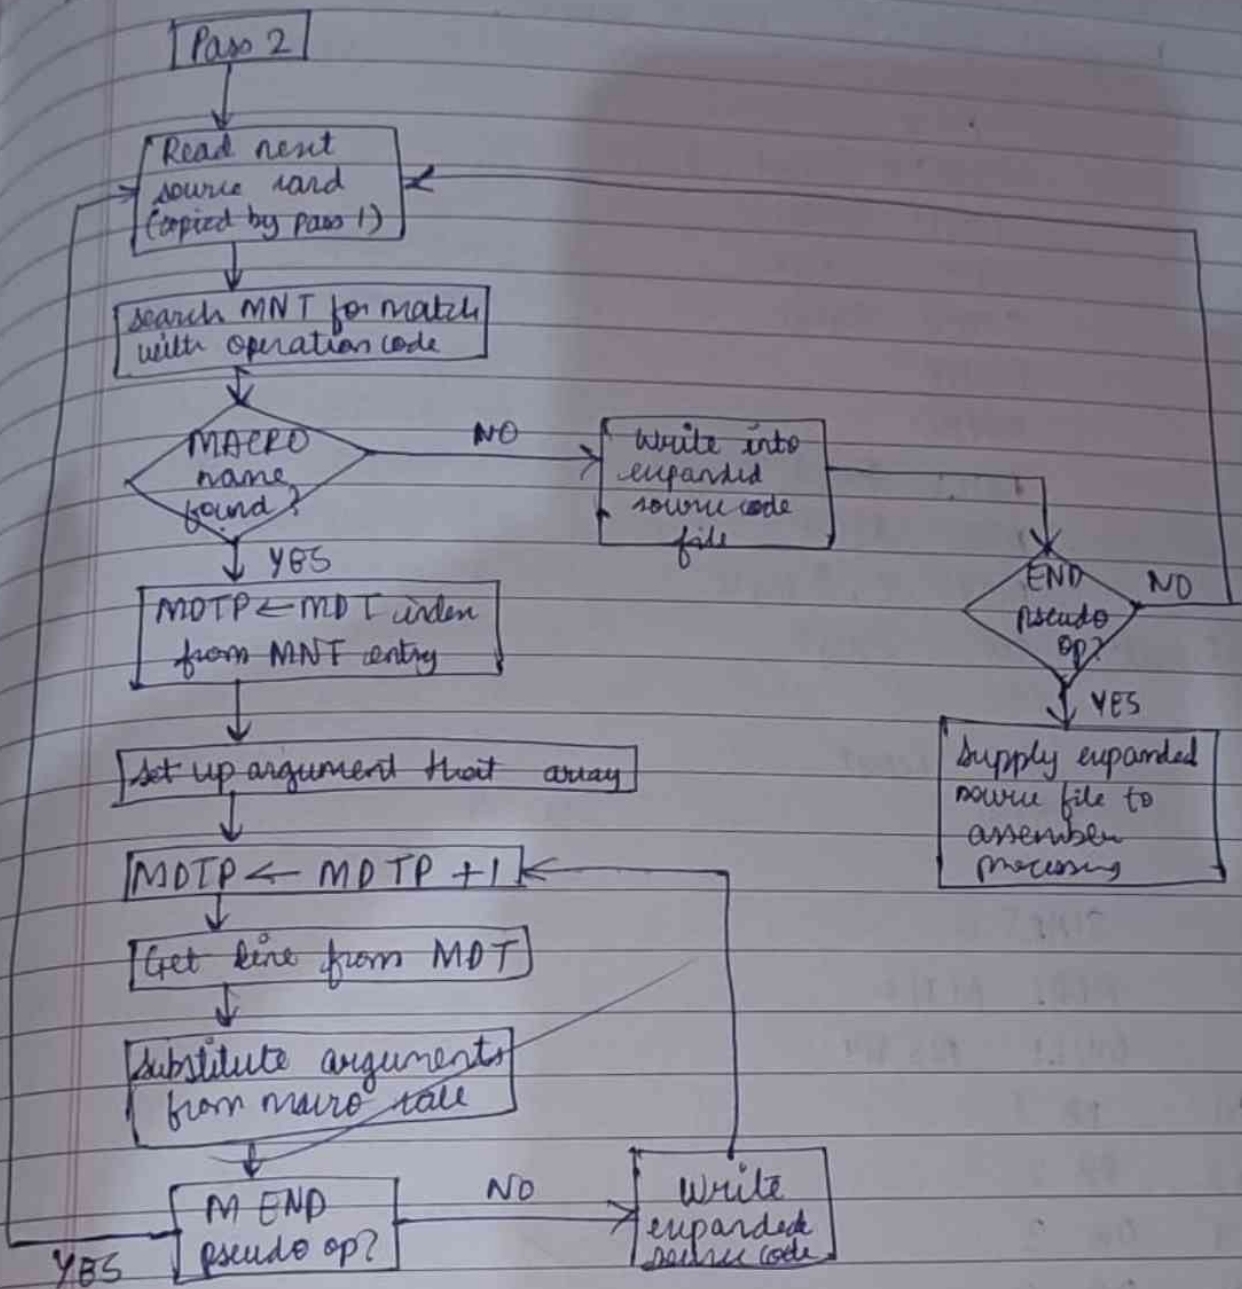 Pass 2
Read next
source card
(copied by pass 1)
search MNT for match
with operation code
MACRO
name
found?
NO
Write into
expanded
source code
file
YES
END
pseudo
op?
NO
YES
Supply expanded
source file to
assembler
processing
MDTP ← MDT index
from MNT entry
Set up argument array
MDTP ← MDTP +1
Get line from MDT
Substitute arguments
from macro call
M END
pseudo op?
NO
Write
expanded
source code
YES